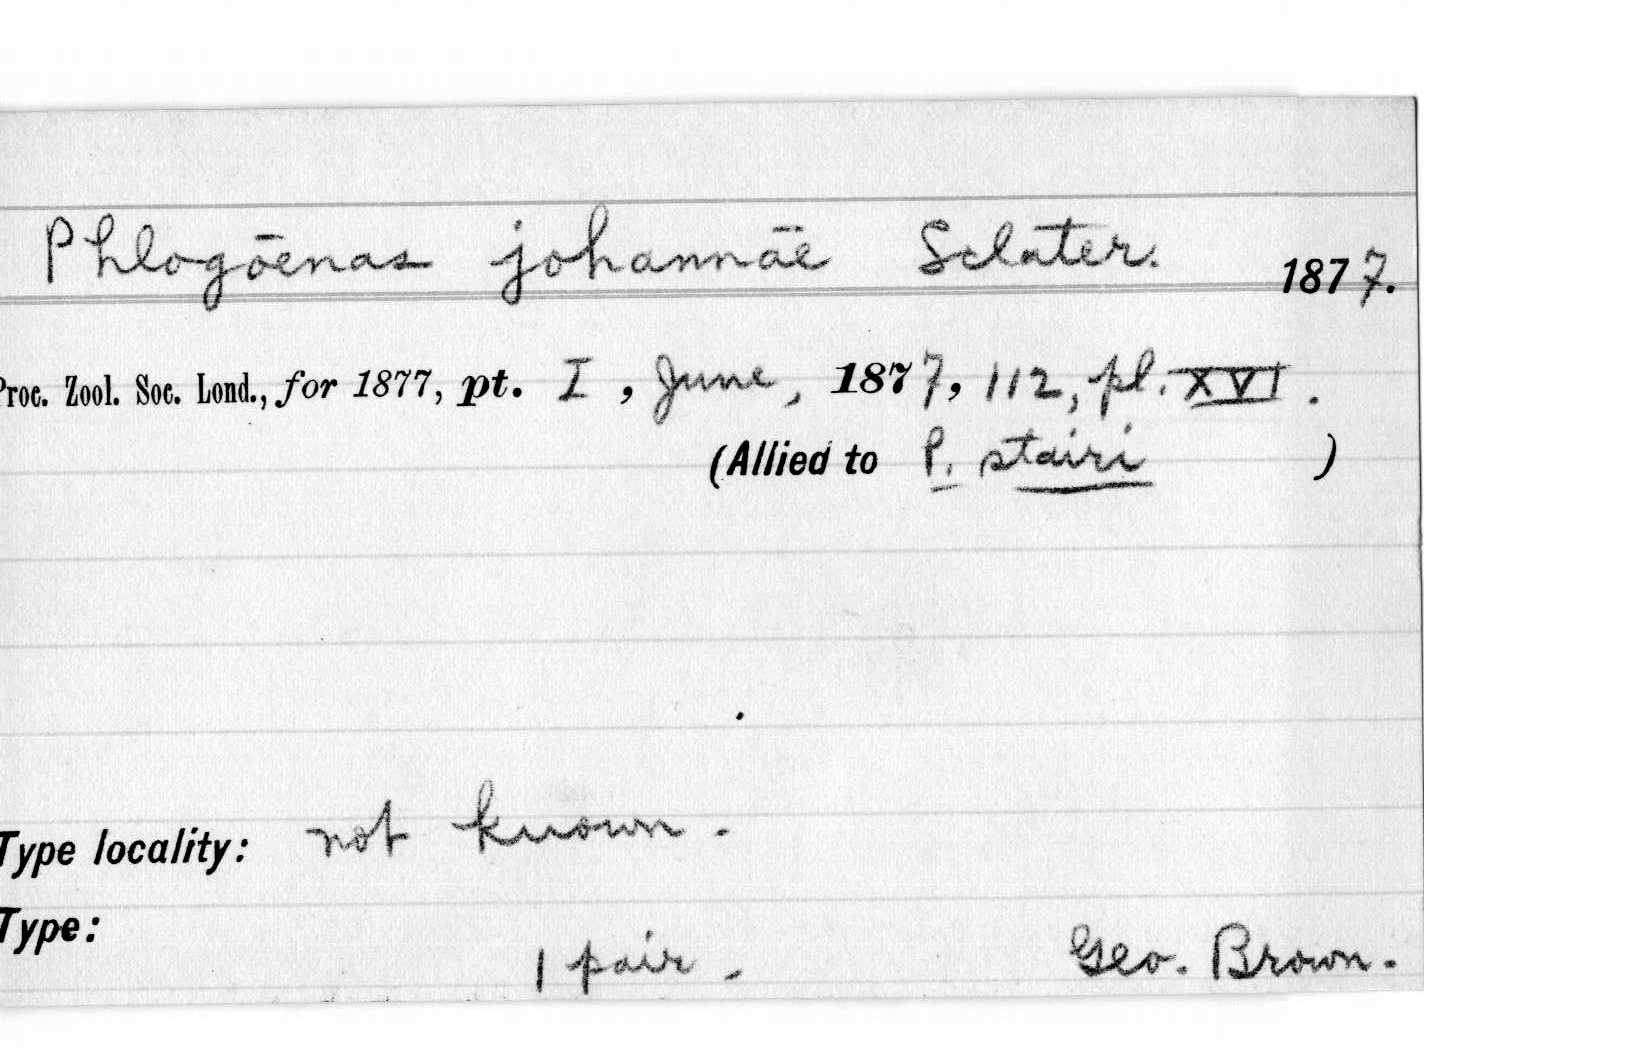 Phlogōenas johannāe Sclater. 1877.
Proc. Zool. Soc. Lond., for 1877, pt. I, June, 1877, 112, pl. XVI.
(Allied to P. stairi )
Type locality: not known.
Type:
1 pair. Geo. Brown.